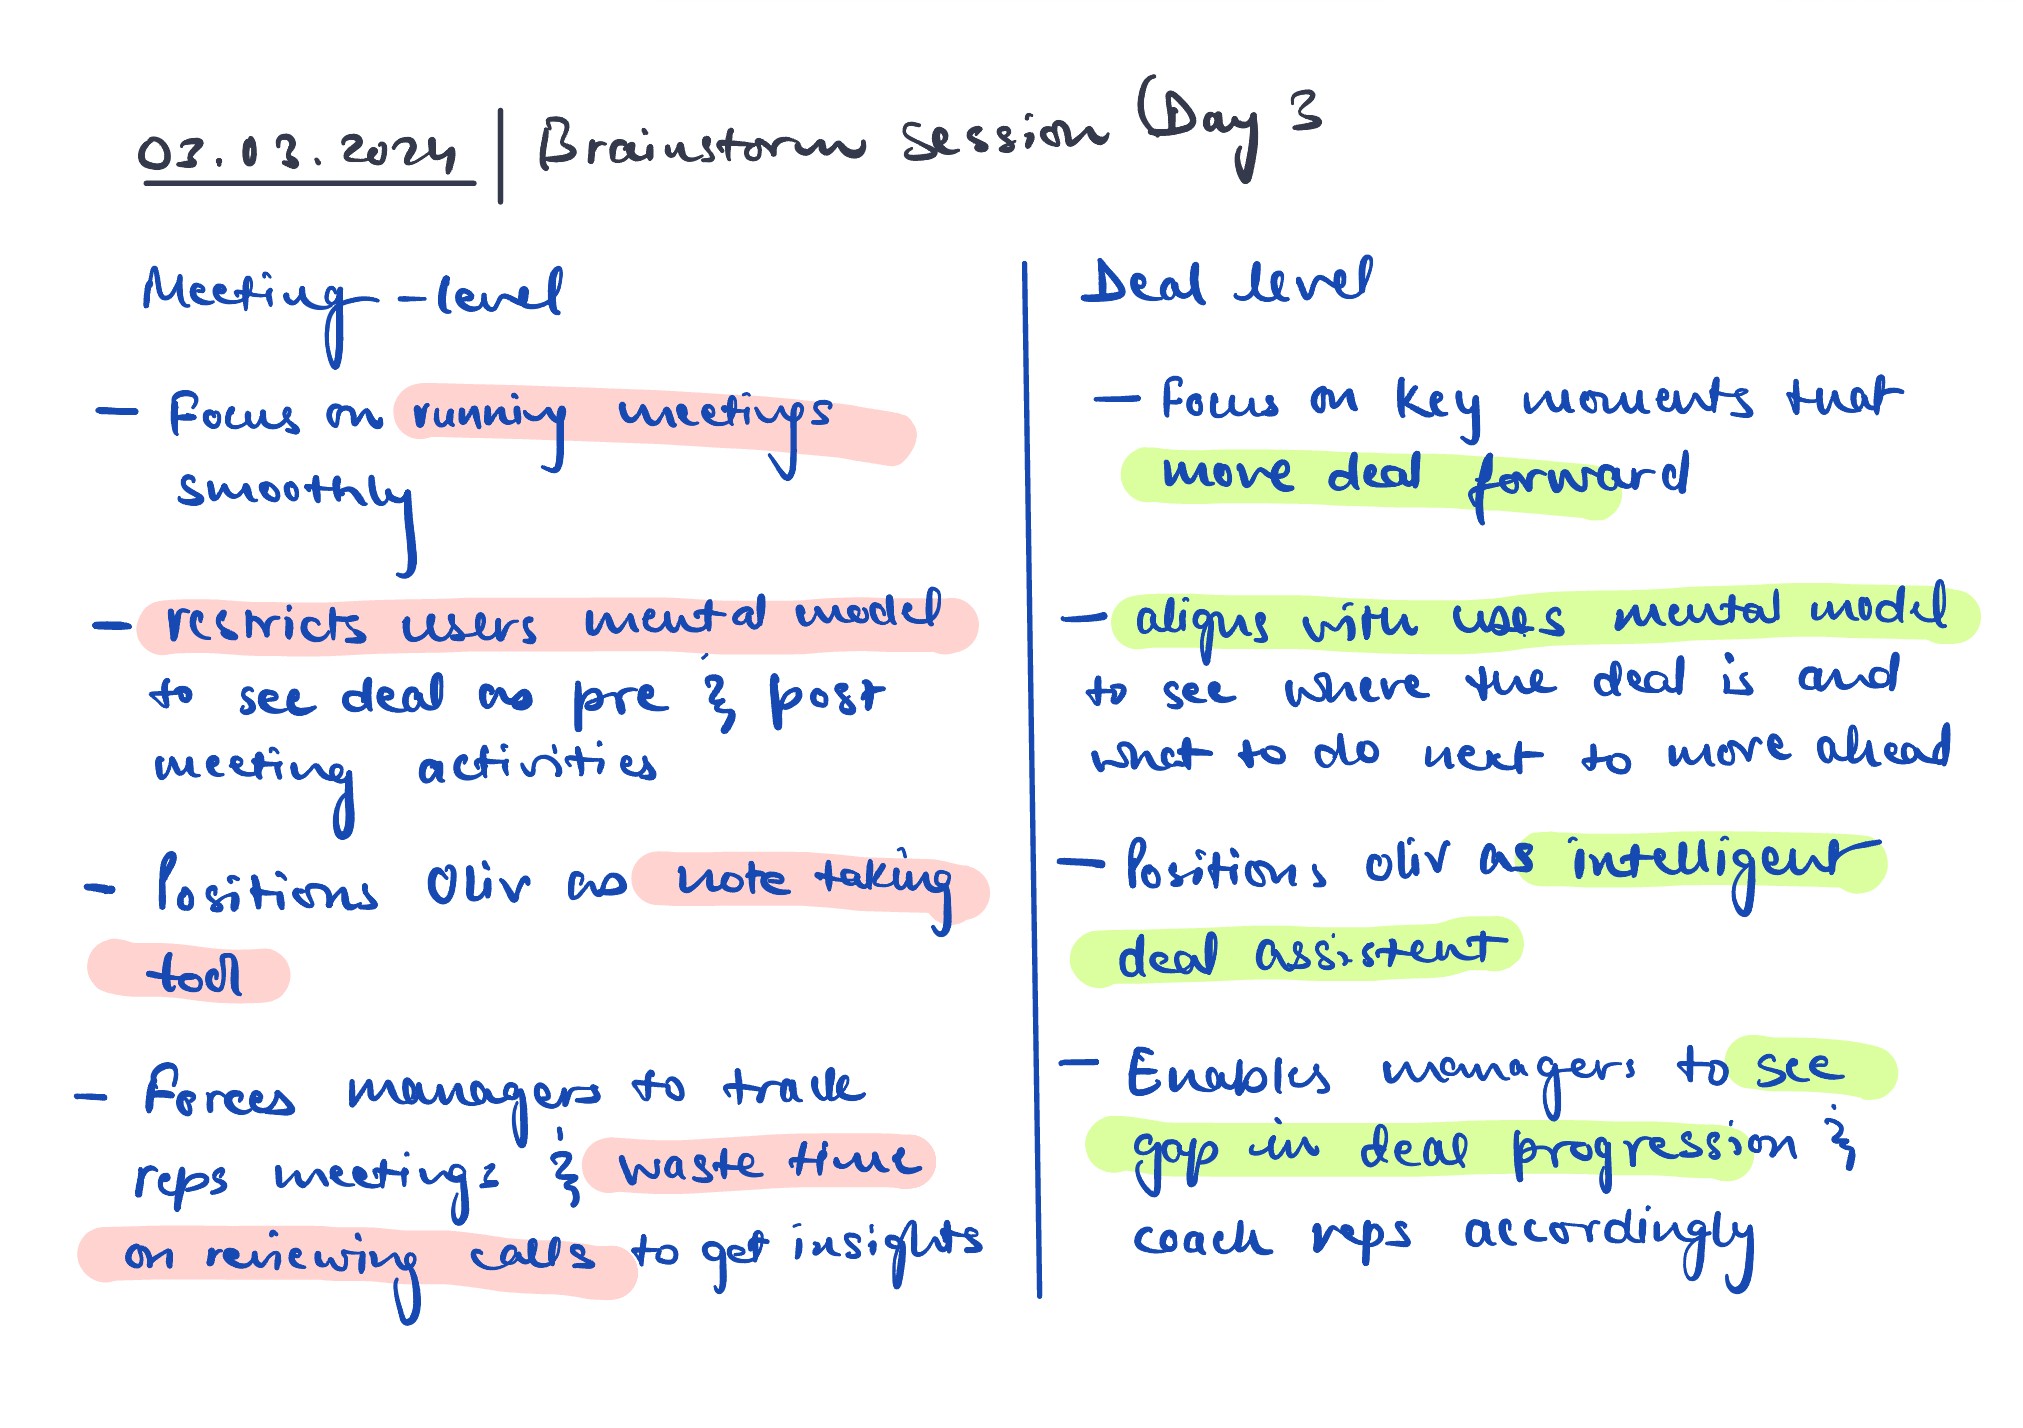 03.03.2024 | Brainstorm session (Day 3
Meeting - level
- Focus on running meetings
smoothly
- restricts users mental model
to see deal as pre & post
meeting activities
- Positions Oliv as note taking
tool
- Forces managers to track
reps meetings & waste time
on reviewing calls to get insights
Deal level
- Focus on key moments that
move deal forward
- aligns with uses mental model
to see where the deal is and
what to do next to move ahead
- Positions Oliv as intelligent
deal assistent
- Enables managers to see
gap in deal progression &
coach reps accordingly